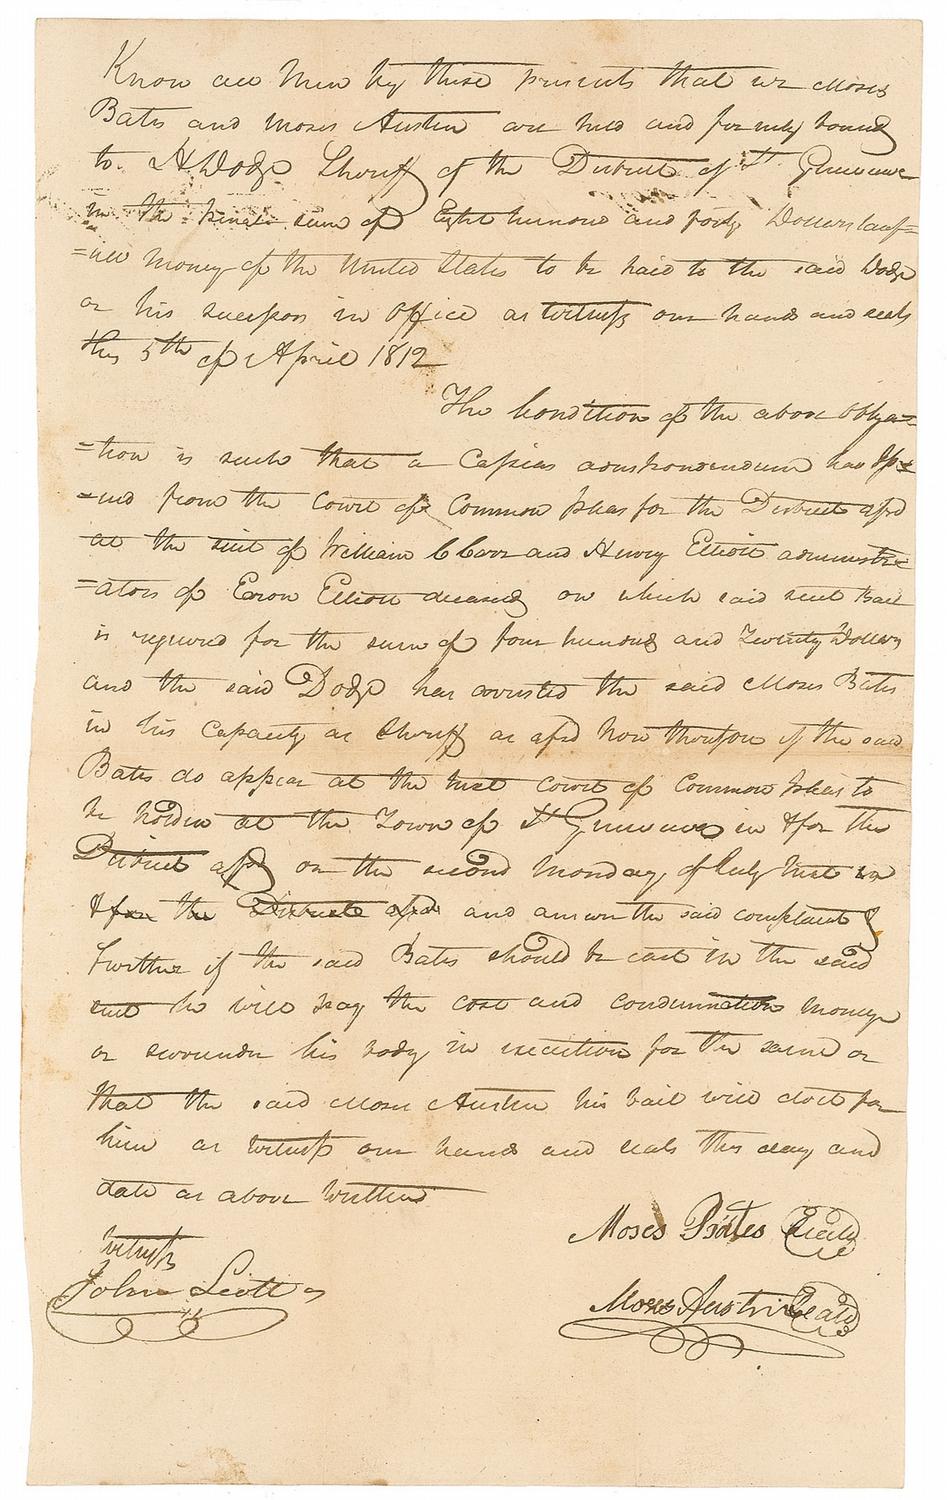 Know all Men by these presents that we Moses
Bates and Moses Austin are held and firmly bound
to H Dodge Sheriff of the District of St Genevieve
in the penal sum of Eight hundred and forty Dollars lawf=
=ull money of the United States to be paid to the said Dodge
or his successors in office as witness our hands and seals
this 5th of April 1812
The Condition of the above obliga=
=tion is such that a Capias ad respondendum has
from the Court of Common pleas for the District afsd
at the suit of William C Carr and Henry Elliott administr=
=ators of Eron Elliott deceased on which said suit Bail
is required for the sum of four hundred and Twenty Dollars
and the said Dodge has arrested the said Moses Bates
in his Capacity as Sheriff as afsd Now therefore if the said
Bates do appear at the next Court of Common pleas to
be holden at the Town of St Genevieve in & for the
District afsd on the second Monday of July next in
& for the District afsd and answer the said complaint &
further if the said Bates should be cast in the said
suit he will pay the cost and condemnation money
or surrender his body in execution for the same or
that the said Moses Austin his bail will do it for
him as witness our hands and seals this day and
date as above written
Moses Bates Seal
witness
John Scott
Moses Austin Seal